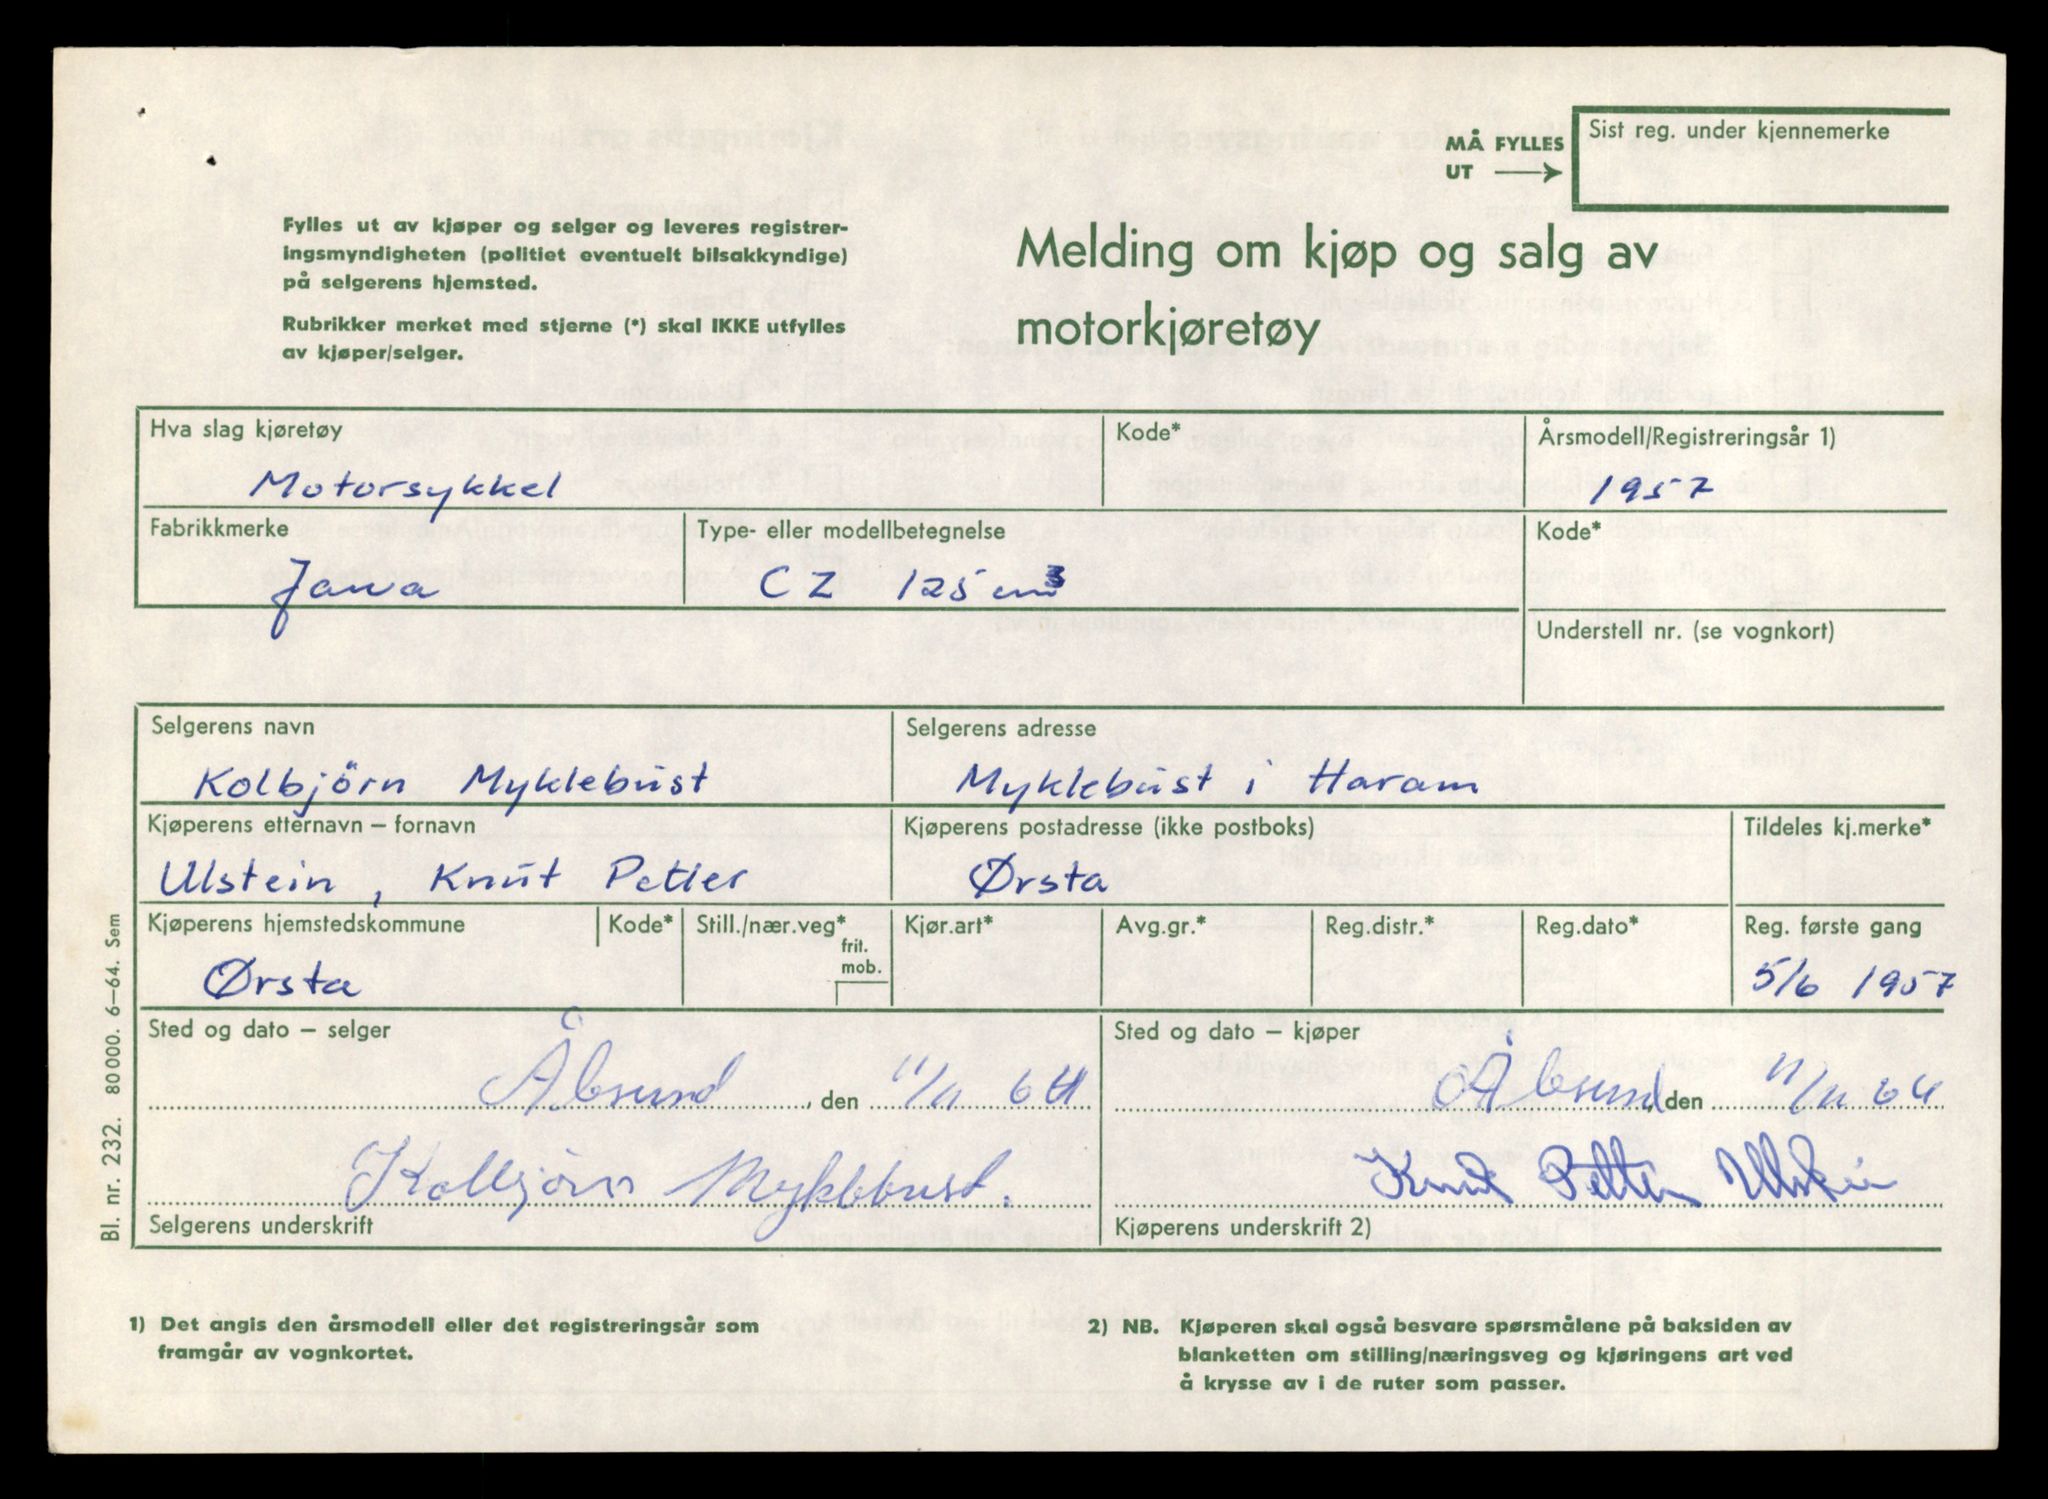 MÅ FYLLES
UT
Sist reg. under kjennemerke
Fylles ut av kjøper og selger og leveres registrer-
ingsmyndigheten (politiet eventuelt bilsakkyndige)
på selgerens hjemsted.
Rubrikker merket med stjerne (*) skal IKKE utfylles
av kjøper/selger.
Melding om kjøp og salg av
motorkjøretøy
Hva slag kjøretøy
Kode*
Årsmodell/Registreringsår 1)
Motorsykkel
1957
Fabrikkmerke
Type- eller modellbetegnelse
Kode*
Jawa
CZ 125 cm3
Understell nr. (se vognkort)
Selgerens navn
Selgerens adresse
Kolbjörn Myklebust
Myklebust i Haram
Kjøperens etternavn – fornavn
Kjøperens postadresse (ikke postboks)
Tildeles kj.merke*
Ulstein, Knut Petter
Ørsta
Kjøperens hjemstedskommune
Kode*
Still./nær.veg*
frit.
mob.
Kjør.art*
Avg.gr.*
Reg.distr.*
Reg.dato*
Reg. første gang
Ørsta
5/6 1957
Sted og dato – selger
Sted og dato – kjøper
Ålesund, den 11/11 64
Ålesund, den 11/11 64
Kolbjörn Myklebust.
Knut Petter Ulstein
Selgerens underskrift
Kjøperens underskrift 2)
Bl. nr. 232. 80000. 6–64. Sem
1) Det angis den årsmodell eller det registreringsår som
framgår av vognkortet.
2) NB. Kjøperen skal også besvare spørsmålene på baksiden av
blanketten om stilling/næringsveg og kjøringens art ved
å krysse av i de ruter som passer.